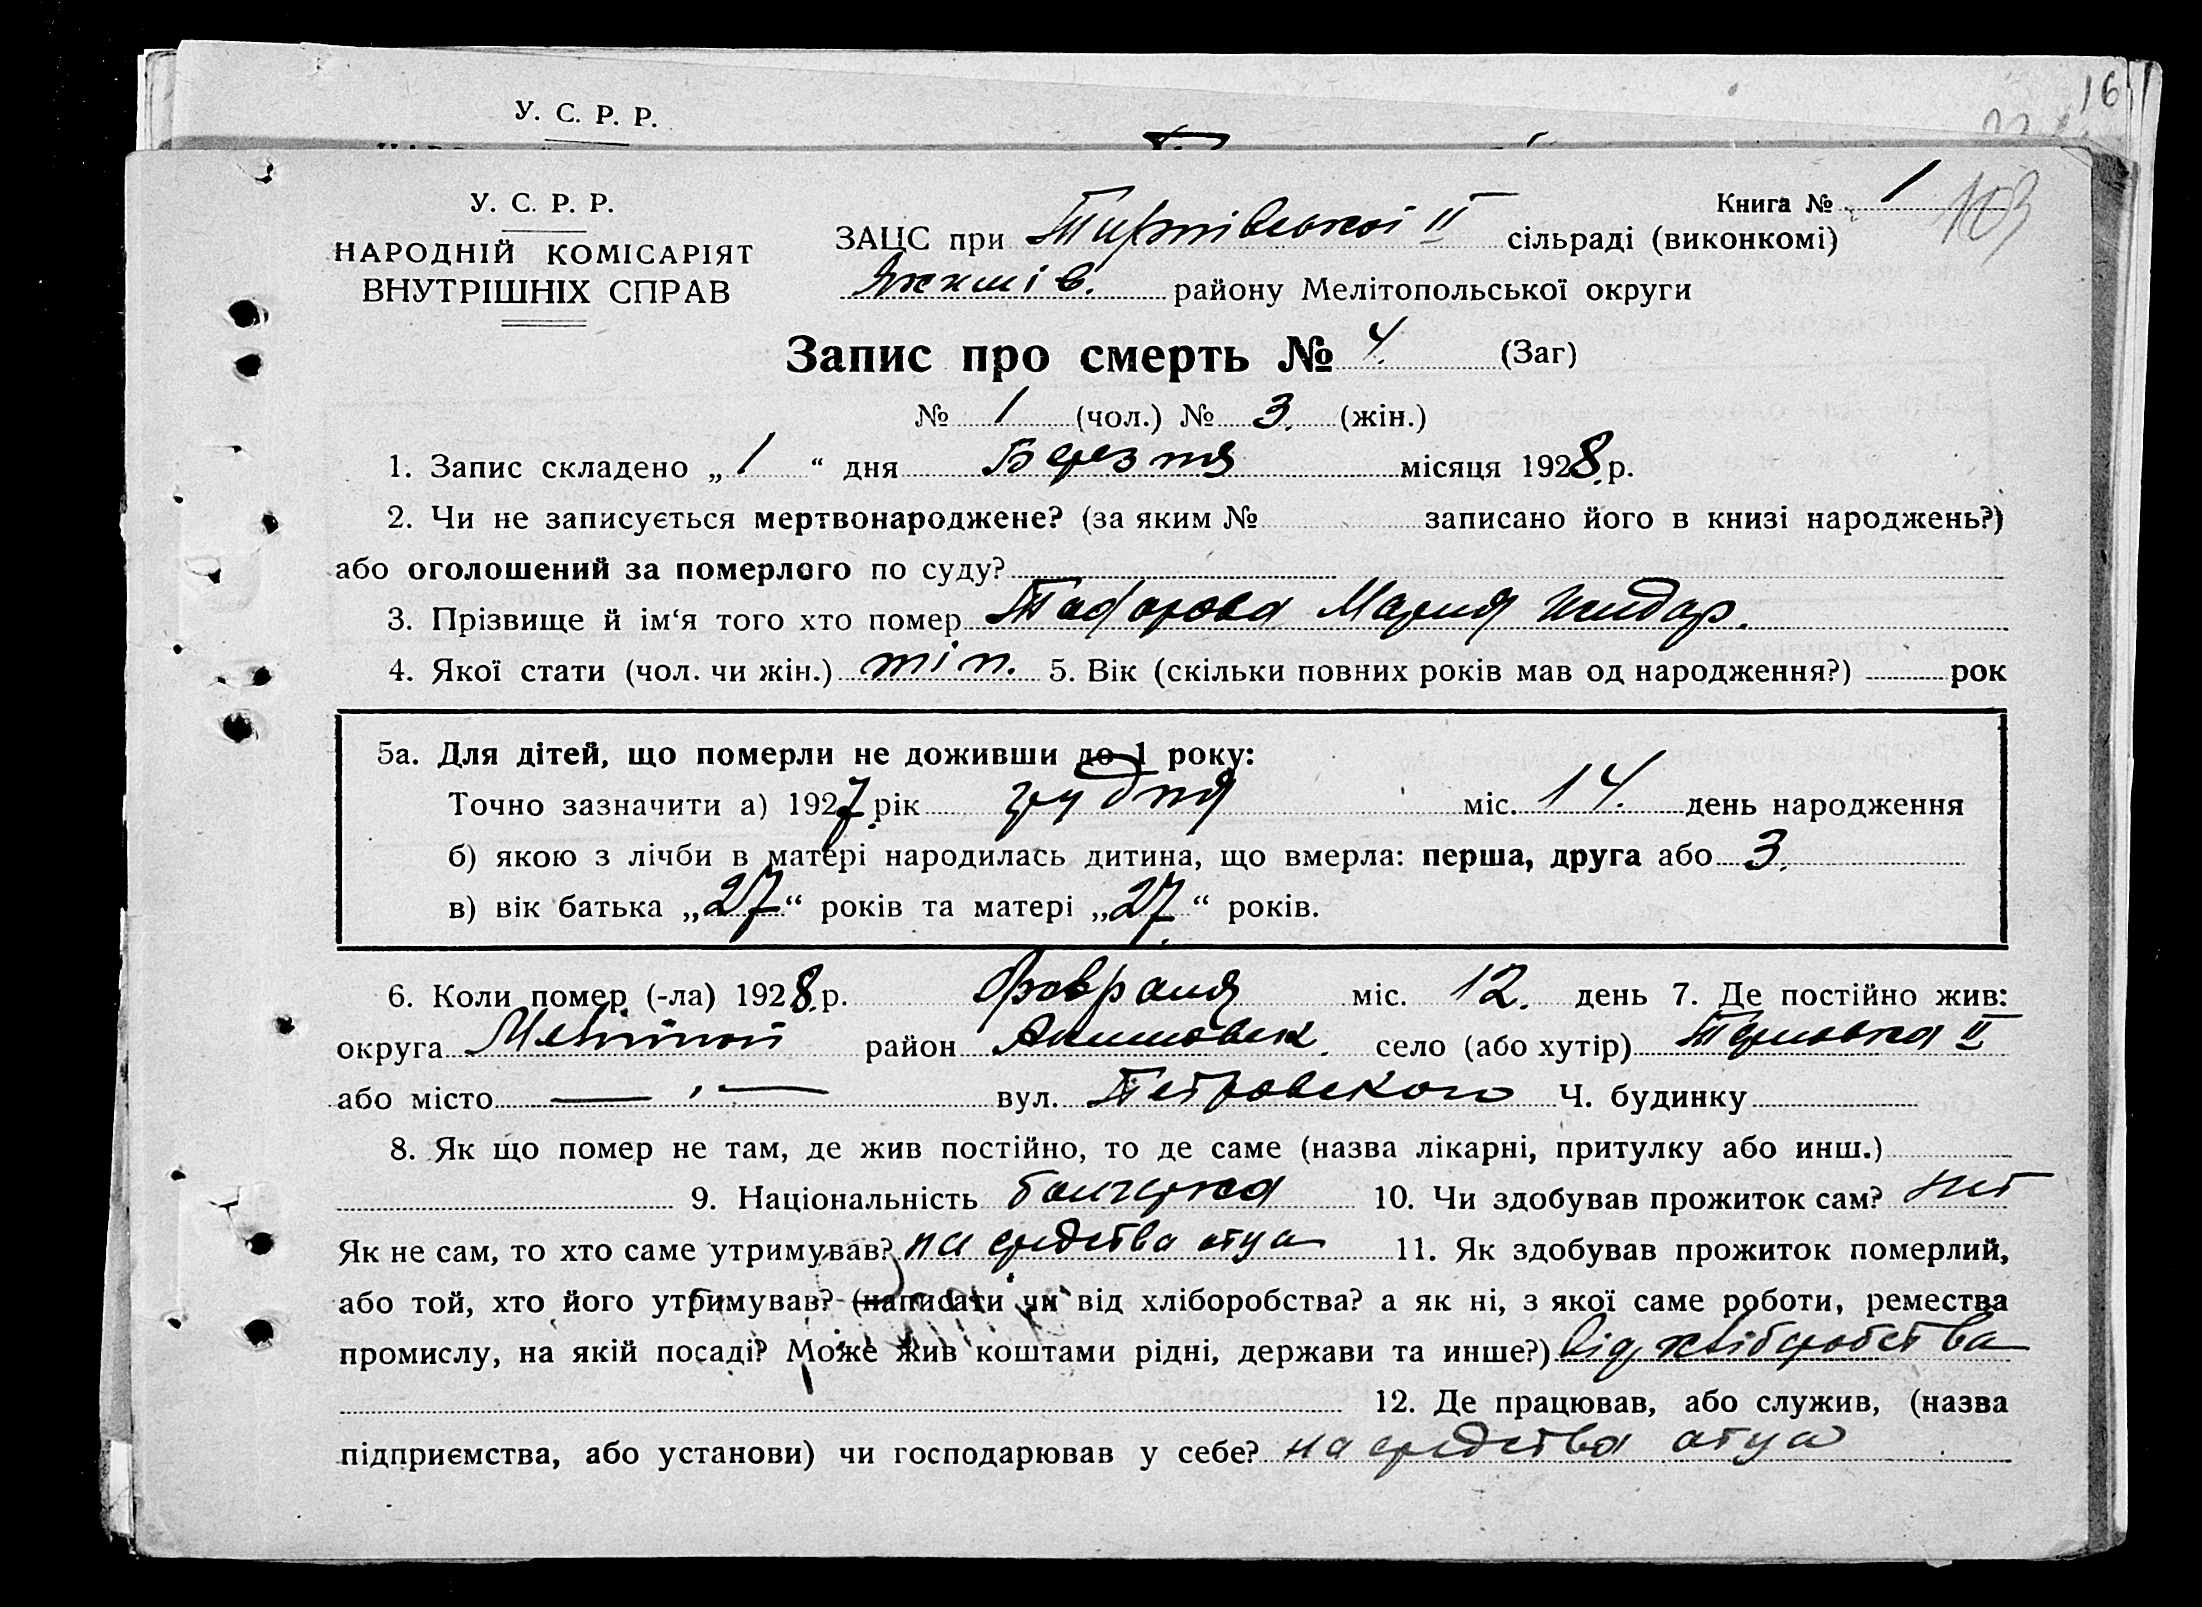 16
У. С. Р. Р.
У. С. Р. Р.
НАРОДНІЙ КОМІСАРІЯТ
ВНУТРІШНІХ СПРАВ
Книга № 1 103
ЗАЦС при II сільраді (виконкомі)
Якимів. району Мелітопольської округи
Запис про смерть № 4. (Заг)
№ 1 (чол.) № 3. (жін.)
1. Запис складено „ 1 “ дня Березня місяця 1928 р.
2. Чи не записується мертвонароджене? (за яким № записано його в книзі народжень?)
або оголошений за померлого по суду?
3. Прізвище й ім‘я того хто помер Мария
4. Якої стати (чол. чи жін.) 5. Вік (скільки повних років мав од народження?) рок
5а. Для дітей, що померли не доживши до 1 року:
Точно зазначити а) 1927 рік грудня міс. 14. день народження
б) якою з лічби в матері народилась дитина, що вмерла: перша, друга або 3.
в) вік батька „27“ років та матері „27“ років.
6. Коли помер (-ла) 1928 р. міс. 12. день 7. Де постійно жив:
округа район село (або хутір) II
або місто вул. Петровского Ч. будинку
8. Як що помер не там, де жив постійно, то де саме (назва лікарні, притулку або инш.)
9. Національність болгарка 10. Чи здобував прожиток сам? нит
Як не сам, то хто саме утримував? на средства отца 11. Як здобував прожиток померлий,
або той, хто його утримував? (написати чи від хліборобства? а як ні, з якої саме роботи, ремества
промислу, на якій посаді? Може жив коштами рідні, держави та инше?) від хліборобства
12. Де працював, або служив, (назва
підприємства, або установи) чи господарював у себе? на средства отца